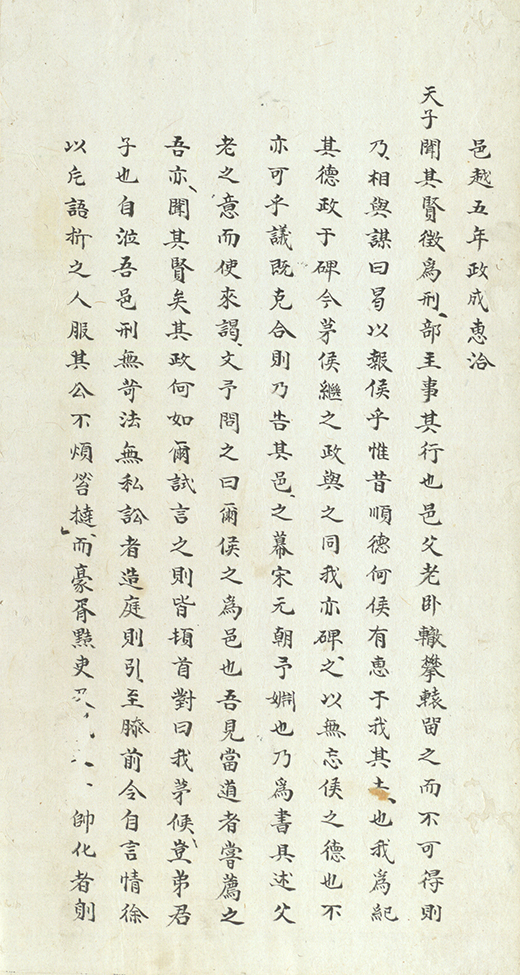 邑越五年政成惠洽
天子聞其賢徵為刑部主事其行也邑父老卧轍攀轅留之而不可得則
乃相與謀曰曷以報侯乎惟昔順德何侯有惠于我其去也我為紀
其德政于碑今茅侯繼之政與之同我亦碑之以無忘侯之德也不
亦可乎議既克合則乃告其邑之幕宋元朝予婣也乃為書具述父
老之意而使來謁文予問之曰爾侯之為邑也吾見當道者嘗薦之
吾亦聞其賢矣其政何如爾試言之則皆頓首對曰我茅侯豈弟君
子也自涖吾邑刑無苛法無私訟者造庭則引至膝前令自言情徐
以片語折之人服其公不煩笞撻而豪胥黠吏帥化者則